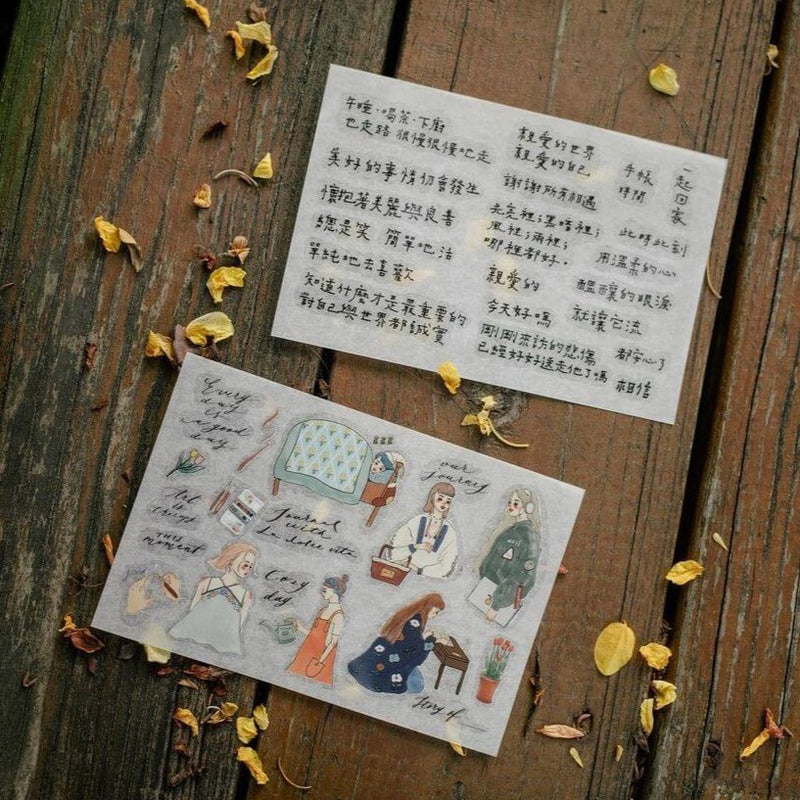 午睡·喝茶·下廚
也走路 很慢很慢地走
美好的事情切會發生
懷抱著美麗與良善
總是笑 簡單地活
單純地去喜歡
知道什麼才是最重要的
對自己與世界都誠實
親愛的世界
親愛的自己
謝謝所有相遇
光亮裡；黑暗裡；
風裡；雨裡；
哪裡都好。
親愛的
今天好嗎
剛剛來訪的悲傷
已經好好送走他了嗎
手帳
時間
一起回家
此時此刻
用溫柔的心
醞釀的眼淚
就讓它流
都安心了
相信
Every
day
is
a good
day
Art
is
therapy
this
moment
Journal
with
La dolce vita
our
journey
Cozy
day
Story of